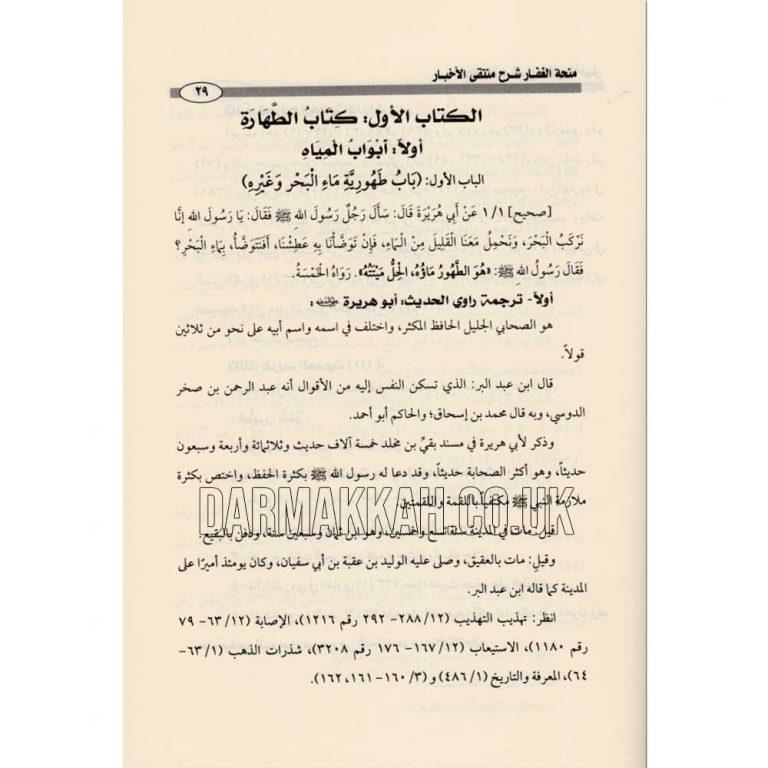 منحة الغفار شرح منتقى الأخبار
٢٩
الكتاب الأول: كتَابُ الطَّهَارَة
أولاً: أبْوَابُ الْمِيَاهِ
الباب الأول: (بَابُ طَهُورِيَّةِ مَاءِ الْبَحْرِ وَغَيْرِهِ)
[صحيح] ١/١ عَنْ أَبِي هُرَيْرَةَ قَالَ: سَأَلَ رَجُلٌ رَسُولَ اللهِ ﷺ فَقَالَ: يَا رَسُولَ اللهِ إِنَّا
نَرْكَبُ الْبَحْرَ، وَنَحْمِلُ مَعَنَا الْقَلِيلَ مِنْ الْمَاءِ، فَإِنْ تَوَضَّأْنَا بِهِ عَطِشْنَا، أَفَنَتَوَضَّأُ، بِمَاءِ الْبَحْرِ؟
فَقَالَ رَسُولُ اللهِ ﷺ: «هُوَ الطَّهُورُ مَاؤُهُ، الْحِلُّ مَيْتَتُهُ». رَوَاهُ الْخَمْسَةُ.
أولاً- ترجمة راوي الحديث: أبو هريرة :
هو الصحابي الجليل الحافظ المكثر، واختلف في اسمه واسم أبيه على نحو من ثلاثين
قولاً.
قال ابن عبد البر: الذي تسكن النفس إليه من الأقوال أنه عبد الرحمن بن صخر
الدوسي، وبه قال محمد بن إسحاق؛ والحاكم أبو أحمد.
وذكر لأبي هريرة في مسند بقيِّ بن مخلد خمسة آلاف حديث وثلاثمائة وأربعة وسبعون
حديثاً، وهو أكثر الصحابة حديثاً، وقد دعا له رسول الله ﷺ بكثرة الحفظ، واختص بكثرة
ملازمة النبي ﷺ مكتفياً باللقمة واللقمتين
DARMAKKAH.CO.UK
قيل: مات في المدينة سنة تسع وخمسين، وهو ابن ثمان وسبعين سنة، ودفن بالبقيع.
وقيل: مات بالعقيق، وصلى عليه الوليد بن عقبة بن أبي سفيان، وكان يومئذ أميرًا على
المدينة كما قاله ابن عبد البر.
انظر: تهذيب التهذيب (١٢/ ٢٨٨- ٢٩٢ رقم ١٢١٦)، الإصابة (١٢/ ٦٣- ٧٩
رقم ١١٨٠)، الاستيعاب (١٢/ ١٦٧- ١٧٦ رقم ٣٢٠٨)، شذرات الذهب (١/ ٦٣-
٦٤)، المعرفة والتاريخ (١/ ٤٨٦) و (٣/ ١٦٠-١٦١، ١٦٢).